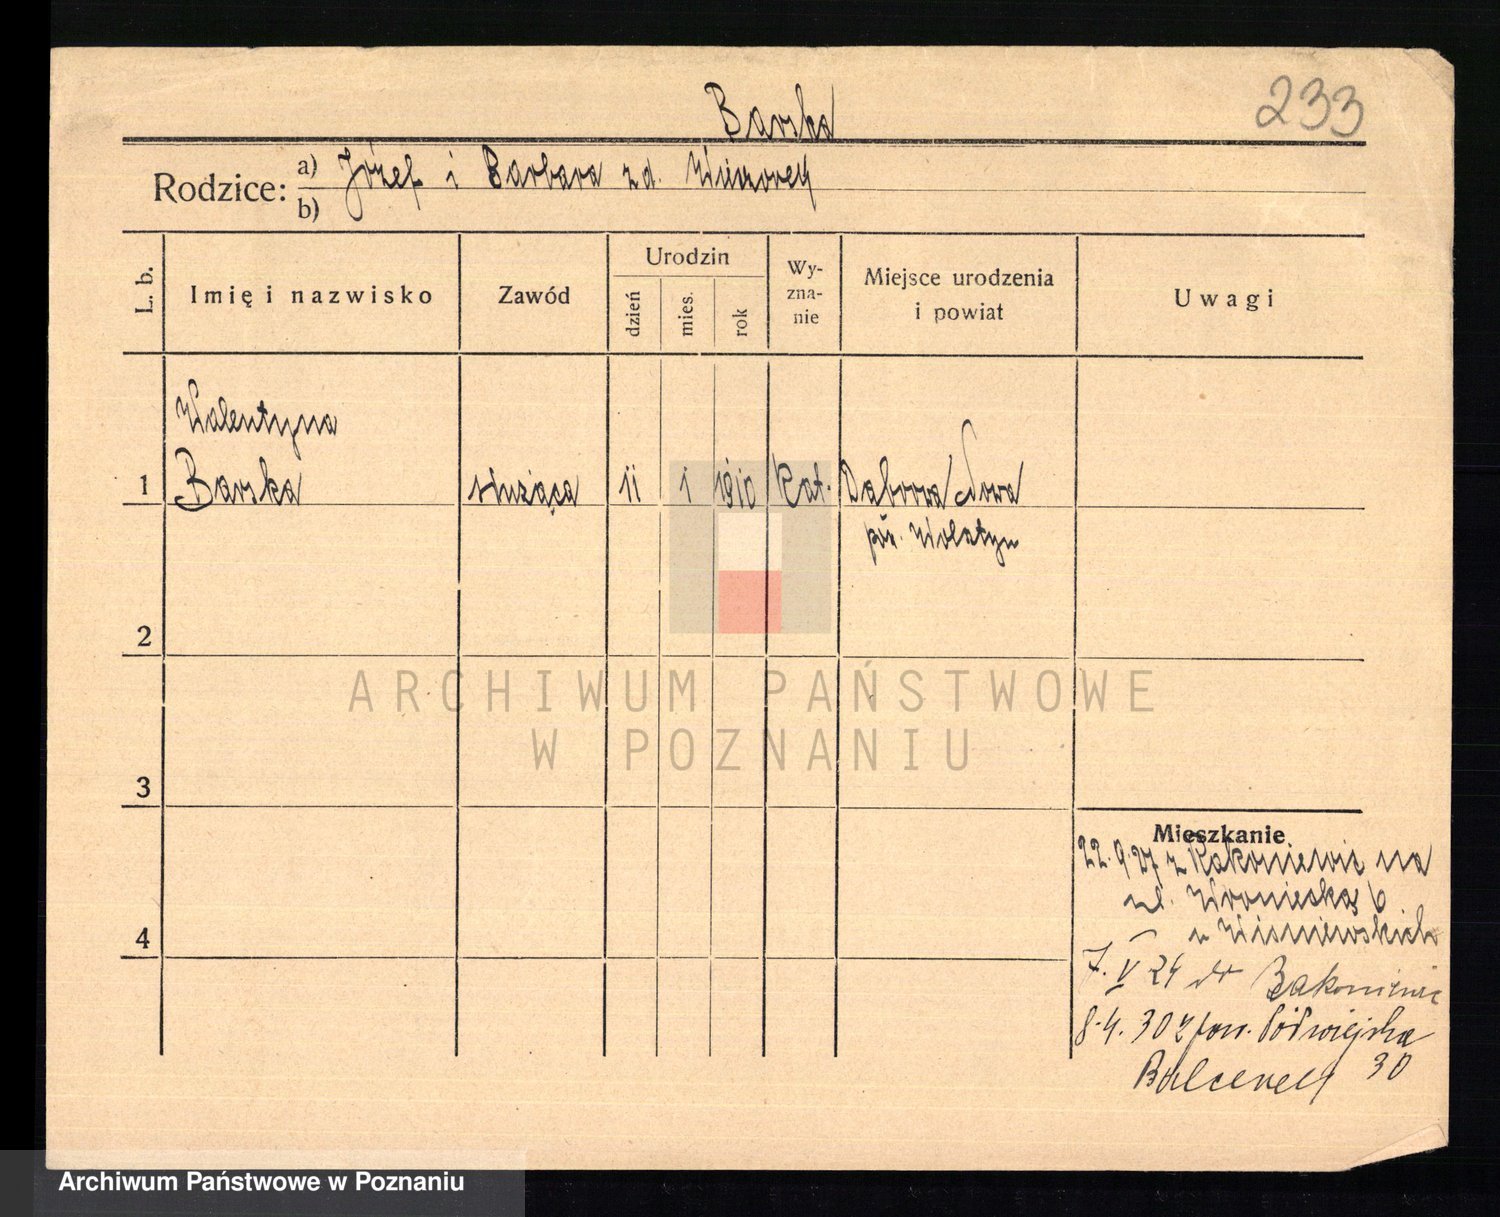 233
Barska
Rodzice: a) Józef i Barbara zd. Wieczorek
b)
L. b.
Imię i nazwisko
Zawód
Urodzin
dzień
mies.
rok
Wy-
zna-
nie
Miejsce urodzenia
i powiat
Uwagi
Walentyna
1 Barska służąca 11 1 1910 kat. Dąbrowa Nowa
pow. Wolsztyn
2
3
4
ARCHIWUM PAŃSTWOWE
W POZNANIU
Mieszkanie.
22.9.27 z Rakoniewic na
ul. Wroniecką 6
u Wiśniewskich
7. V 24 do Rakoniewic
8.4.30 z pow. Półwiejska
30
Archiwum Państwowe w Poznaniu